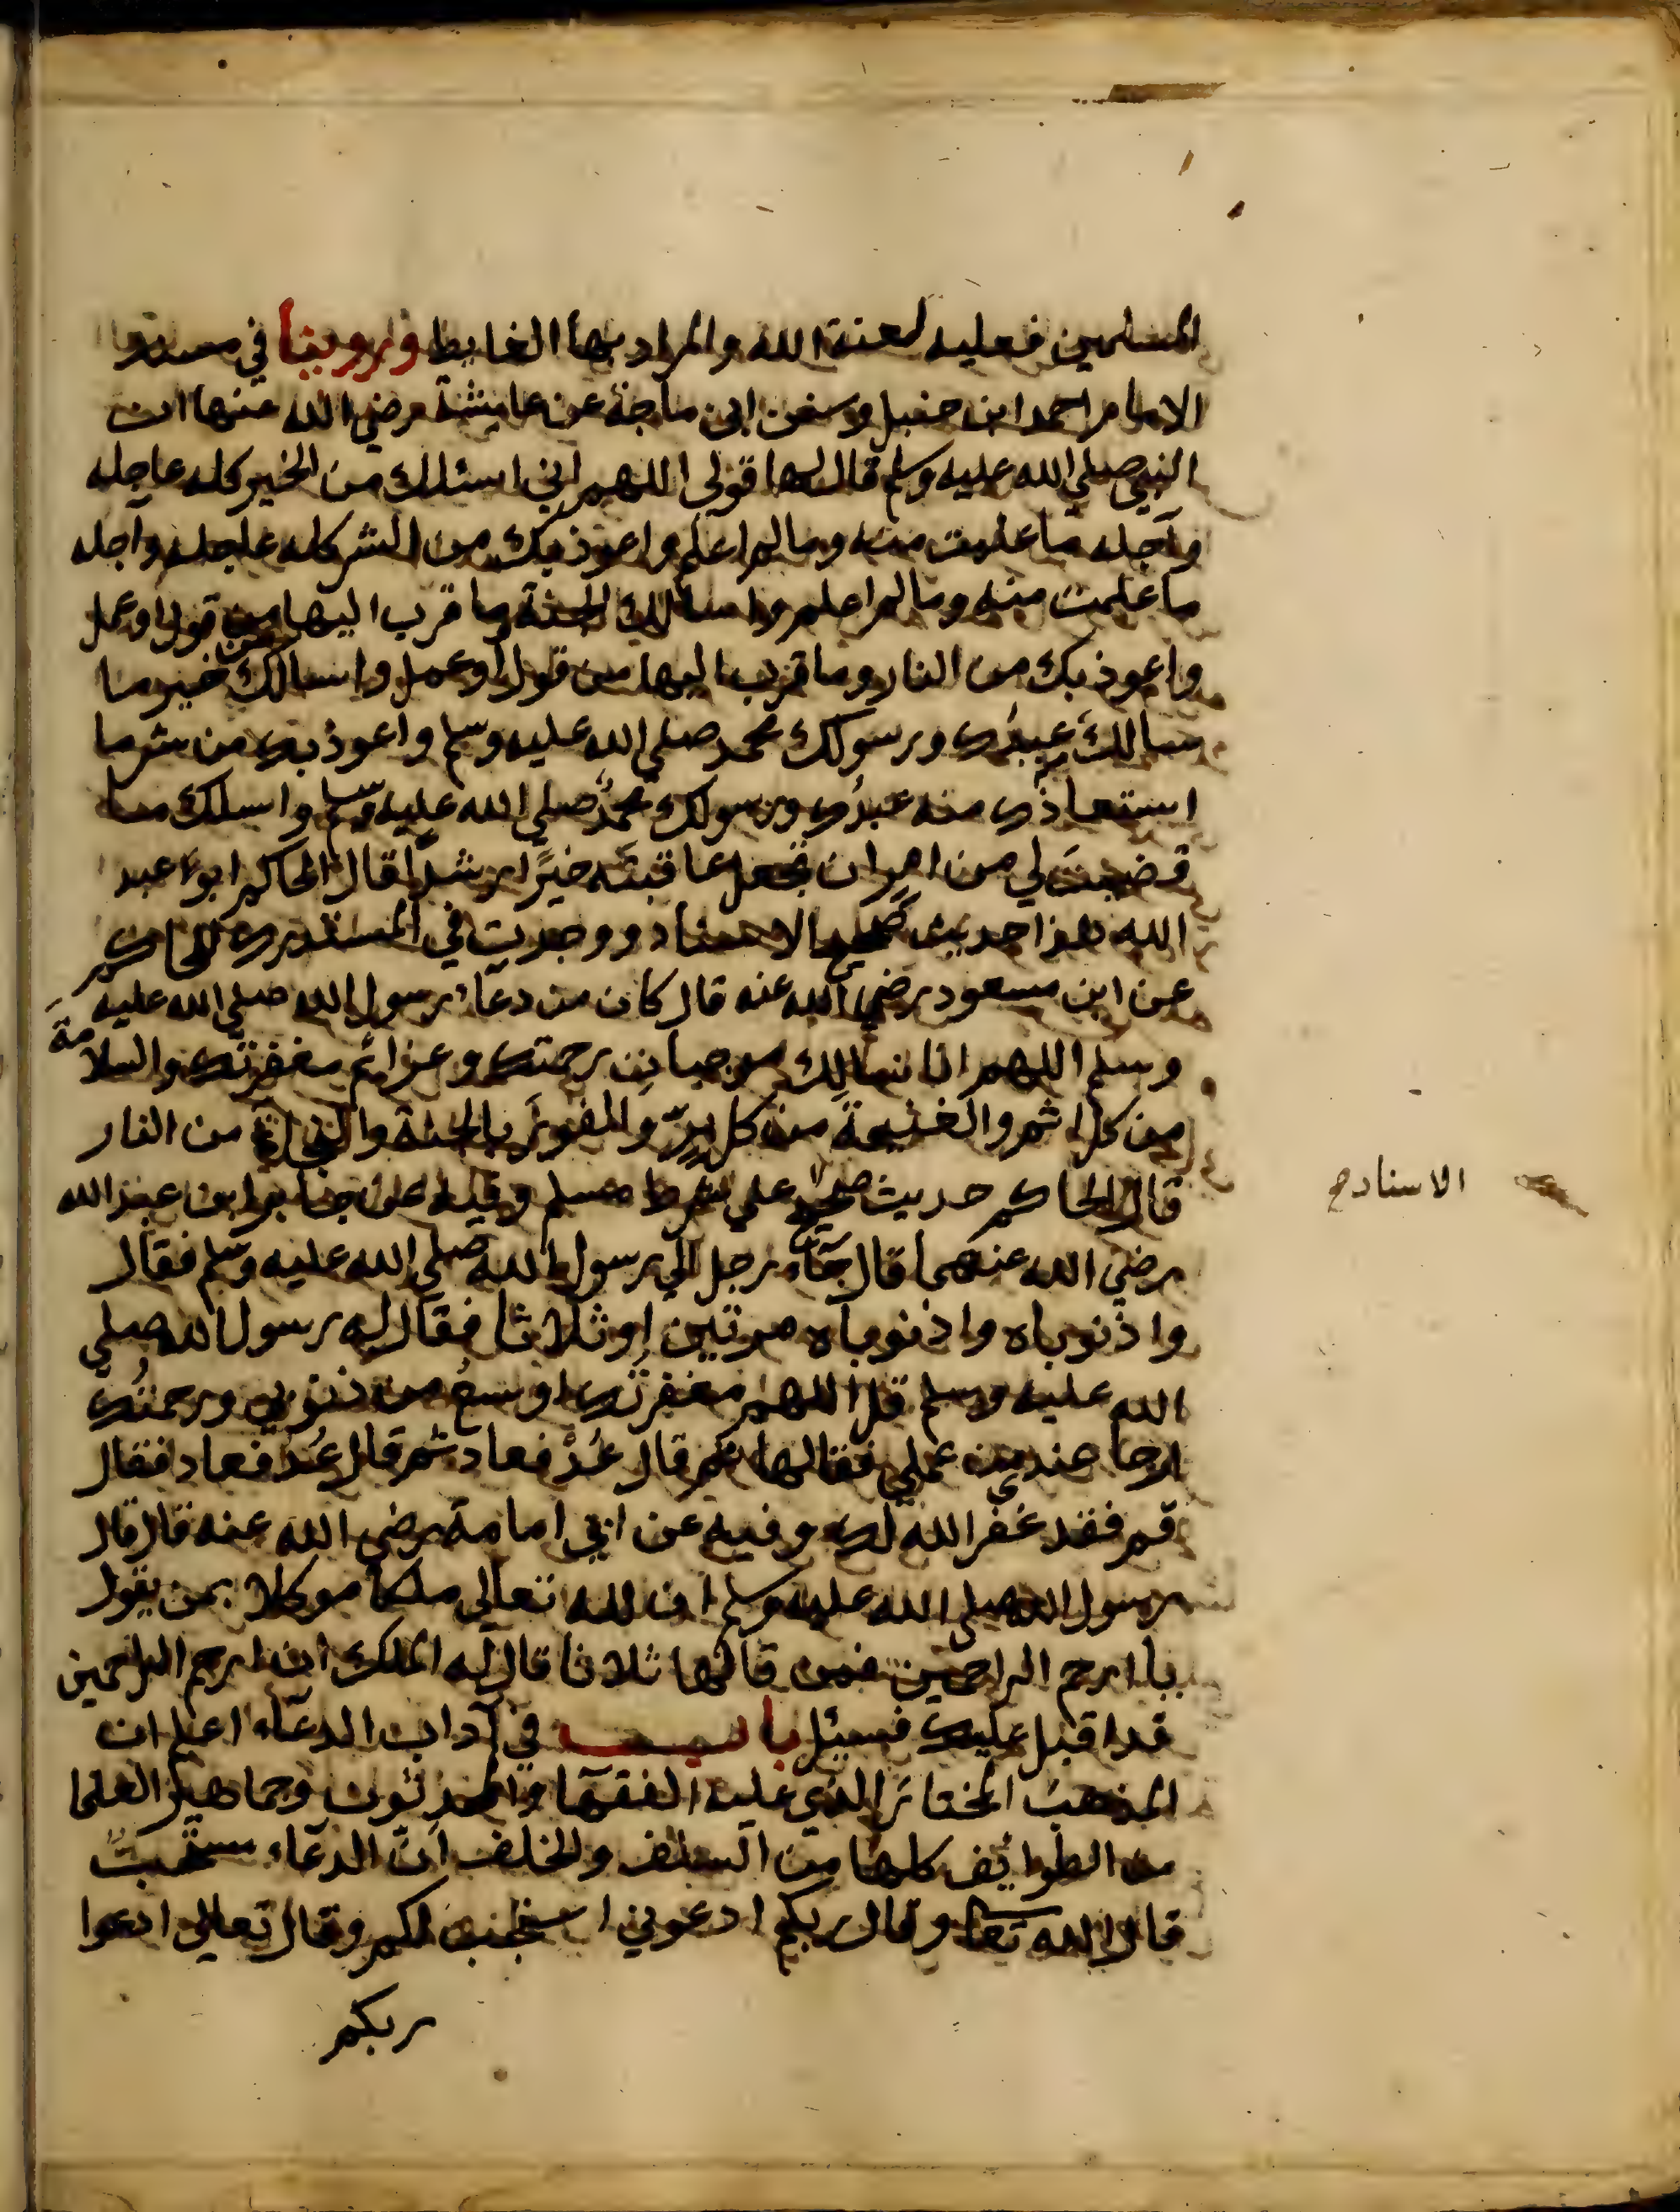 المسلمين فعليه لعنة الله والمراد بها الغايط وروينا في مسند
الامام احمد ابن حنبل وسنن ابن ماجة عن عايشة رضي الله عنها ان
النبي صلي الله عليه وسلم قال لها قولي اللهم اني اسئلك من الخير كله عاجله
وآجله ما علمت منه وما لم اعلم واعوذ بك من الشر كله عاجله واجله
ما علمت منه وما لم اعلم واسالك الجنة وما قرب اليها من قول او عمل
واعوذ بك من النار وما قرب اليها من قول او عمل واسالك خير ما
سالك عبدك ورسولك محمد صلي الله عليه وسلم واعوذ بك من شر ما
استعاذك منه عبدك ورسولك محمد صلي الله عليه وسلم واسلك ما
قضيت لي من امر ان تجعل عاقبته خيرًا رشدًا قال الحاكم ابو عبد
الله هذا حديث صحيح الاسناد ووجدت في المستدرك للحاكم
عن ابن مسعود رضي الله عنه قال كان من دعاء رسول الله صلي الله عليه
وسلم اللهم انا نسالك موجبات رحمتك وعزائم مغفرتك والسلامة
من كل اثم والغنيمة من كل برّ والفوز بالجنة والنجاة من النار
قال الحاكم حديث صحيح علي شرط مسلم وفيه عن جابر ابن عبد الله
الاسناد صح
رضي الله عنهما قال جآء رجل الي رسول الله صلي الله عليه وسلم فقال
واذنوباه واذنوباه مرتين او ثلاثا فقال له رسول الله صلي
الله عليه وسلم قل اللهم مغفرتك اوسع من ذنوبي ورحمتك
ارجا عندي من عملي فقالها ثم قال عُدْ فعاد ثم قال عُد فعاد فقال
قم فقد غفر الله لك وفيه عن ابي امامة رضي الله عنه قال قال
رسول الله صلي الله عليه وسلم ان لله تعالي ملكا موكلا بمن يقول
يا ارحم الراحمين فمن قالها ثلاثا قال له الملك ان ارحم الراحمين
قد اقبل عليك فسئل باب في آداب الدعآء اعلم ان
المذهب المختار الذي عليه الفقهآ والمحدثون وجماهير العلما
من الطوائف كلها من السلف والخلف انّ الدعآء مستحبٌ
قال الله تعا وقال ربكم ادعوني استجب لكم وقال تعالي ادعوا
ربكم